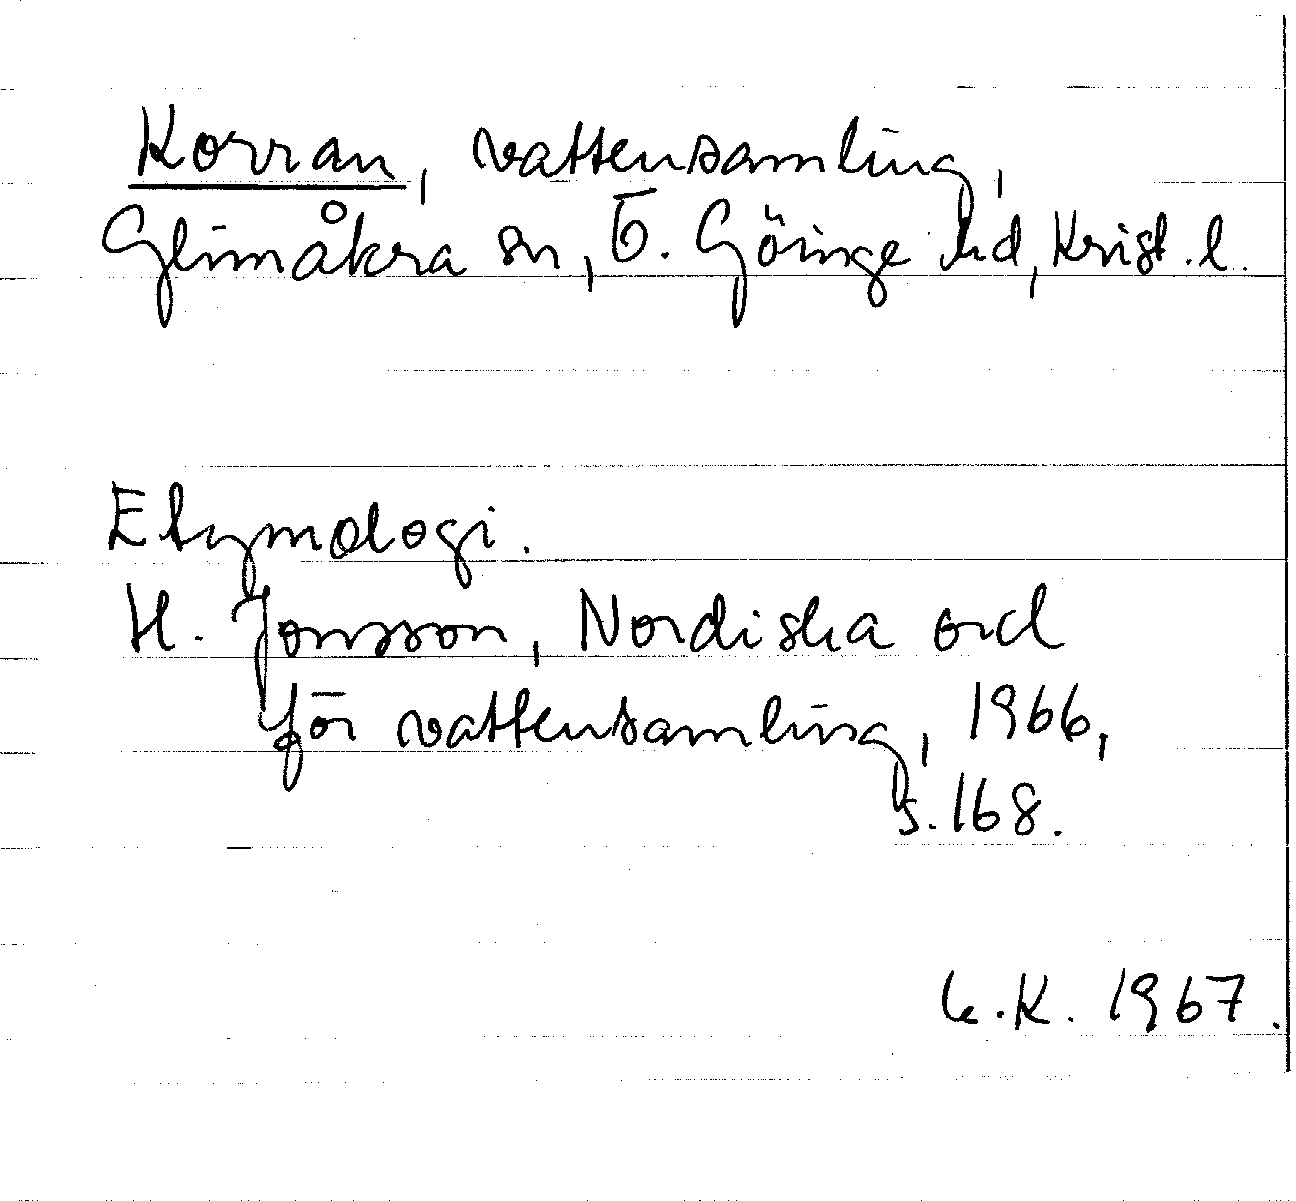 Korran, vattensamling,
Glimåkra sn, Ö. Göinge hd, Krist. l.
Etymologi.
H. Jonsson, Nordiska ord
för vattensamling, 1966,
s. 168.
K. 1967.